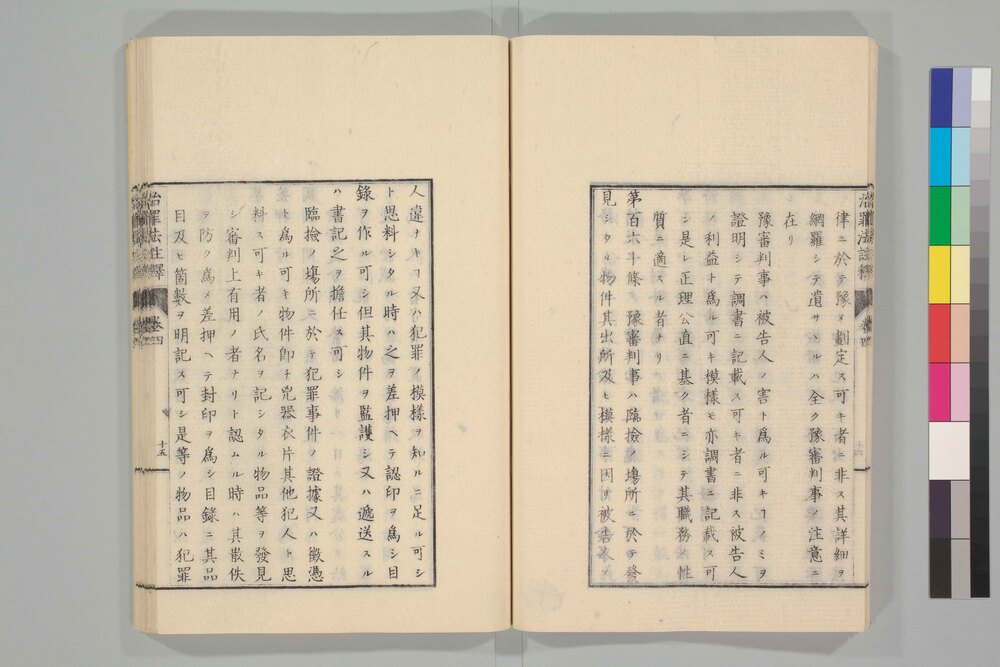 律ニ於テ豫メ劃定ス可キ者ニ非ス其詳細ヲ
網羅シテ遺サヽルハ全ク豫審判事ノ注意ニ
在リ
豫審判事ハ被告人ノ害ト爲ル可キヿノミヲ
證明シテ調書ニ記載ス可キ者ニ非ス被告人
ノ利益ト爲ル可キ模樣モ亦調書ニ記載ス可
シ是レ正理公直ニ基ク者ニシテ其職務ノ性
質ニ適スル者ナリ
第百六十條 豫審判事ハ臨撿ノ塲所ニ於テ發
見シタル物件其出所及ヒ模樣ニ因リ被告人ノ
治罪法註釋 卷四
人違ナキヿ又ハ犯罪ノ模樣ヲ知ルニ足ル可シ
ト思料シタル時ハ之ヲ差押ヘテ認印ヲ爲シ目
錄ヲ作ル可シ但其物件ヲ監護シ又ハ遞送スル
ハ書記之ヲ擔任ス可シ
臨撿ノ塲所ニ於テ犯罪事件ノ證據又ハ徴憑
ト爲ル可キ物件卽チ兇器衣片其他犯人ト思
料ス可キ者ノ氏名ヲ記シタル物品等ヲ發見
シ審判上有用ノ者ナリト認ムル時ハ其散佚
ヲ防ク爲メ差押ヘテ封印ヲ爲シ目錄ニ其品
目及ヒ箇數ヲ明記ス可シ是等ノ物品ハ犯罪
治罪法註釋 卷四 十五